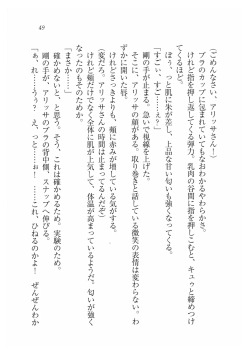 49
(ごめんなさい、アリッサさん！)
ブラのカップに包まれていてもなおわかるやわらかさ。
けれど指を押し返してくる弾力、乳肉の谷間に指を押しこむと、キュゥと締めつけ
てくるほど。
ぽぅ、っと肌に朱が差し、上品な甘い匂いも強くなって香る。
「すごい、すご……え？」
剛の手が止まる。急いで視線を上げた。
そこにアリッサの顔がある。取り巻きと話している微笑の表情は変わらない。わ
ずかに開いた唇。
けれどさっきよりも、頬に赤みが増している気がする。
(変だろ。アリッサさんの時間は止まってるんだぞ)
けれど頬だけでなく全体に肌が上気して、体温が高まっているようだ。匂いが強く
なったのもそのためか。
「まさか……」
確かめないと、と思う。そう、これは確かめるため、実験のため。
剛の手が、アリッサのブラの背中側、スナップへ伸びる。
「あ、れ……うぅ？　え、っと……お……これ、ひねるのかよ！　ぜんぜんわか